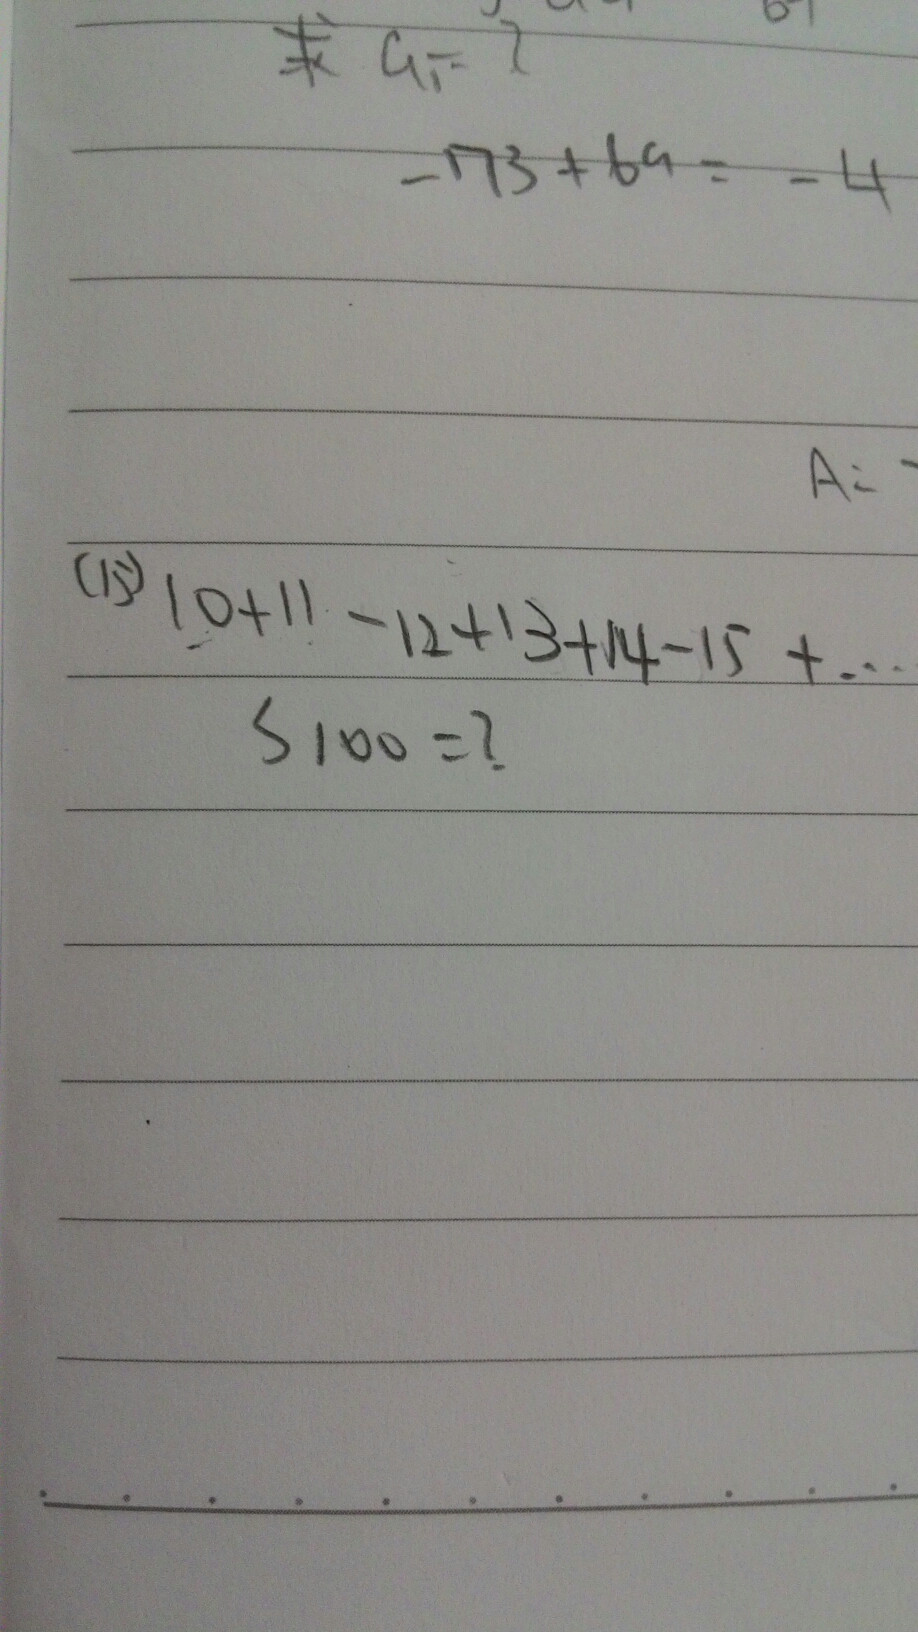 求 a₁ = ?
-173 + 69 = -4
A:
(15) 10+11-12+13+14-15 + ...
S100 = ?